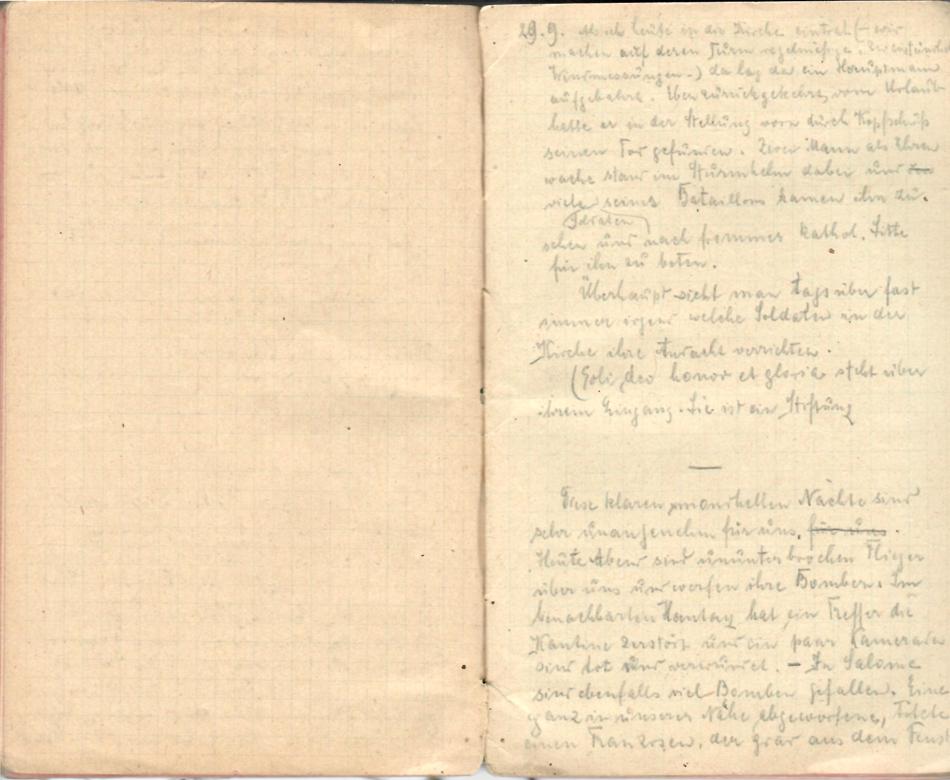 29.9. Als ich heute in die Kirche eintrat (– wir
machen auf deren Turm regelmässige,
Windmessungen –) da lag da ein Hauptmann
aufgebahrt. Eben zurückgekehrt vom Urlaub
hatte er in der Stellung vorn durch Kopfschuß
seinen Tod gefunden. Zwei Mann als Ehren
wache stand im Sturmhelm dabei und
viele seines Bataillons kamen ihn zu
Soldaten
sehen und nach frommer kathol. Sitte
für ihn zu beten.
Überhaupt sieht man tags über fast
immer irgend welche Soldaten in der
Kirche ihre Andacht verrichten.
(Soli deo honor et gloria steht über
ihrem Eingang. Sie ist ein Stiftung
—
Diese klaren, mondhellen Nächte sind
sehr unangenehm für uns, für uns.
Heute Abend sind ununterbrochen Flieger
über uns und werfen ihre Bomben. Im
benachbarten Hantay hat ein Treffer die
Kantine zerstört und ein paar Kameraden
sind tot und verwundet. – In Salomé
sind ebenfalls viel Bomben gefallen. Eine
ganz in unserer Nähe abgeworfene, tötete
einen Franzosen, der grad aus dem Fenst